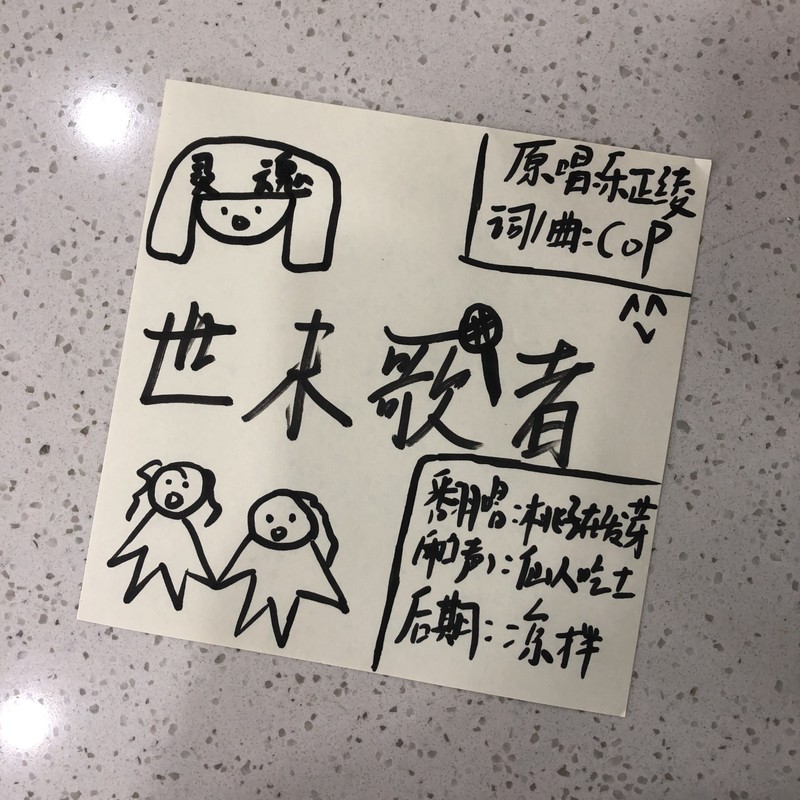 灵魂
原唱:乐正绫
词/曲:COP
世末歌者
翻唱:桃子在发芽
和声:仙人吃土
后期:凉拌